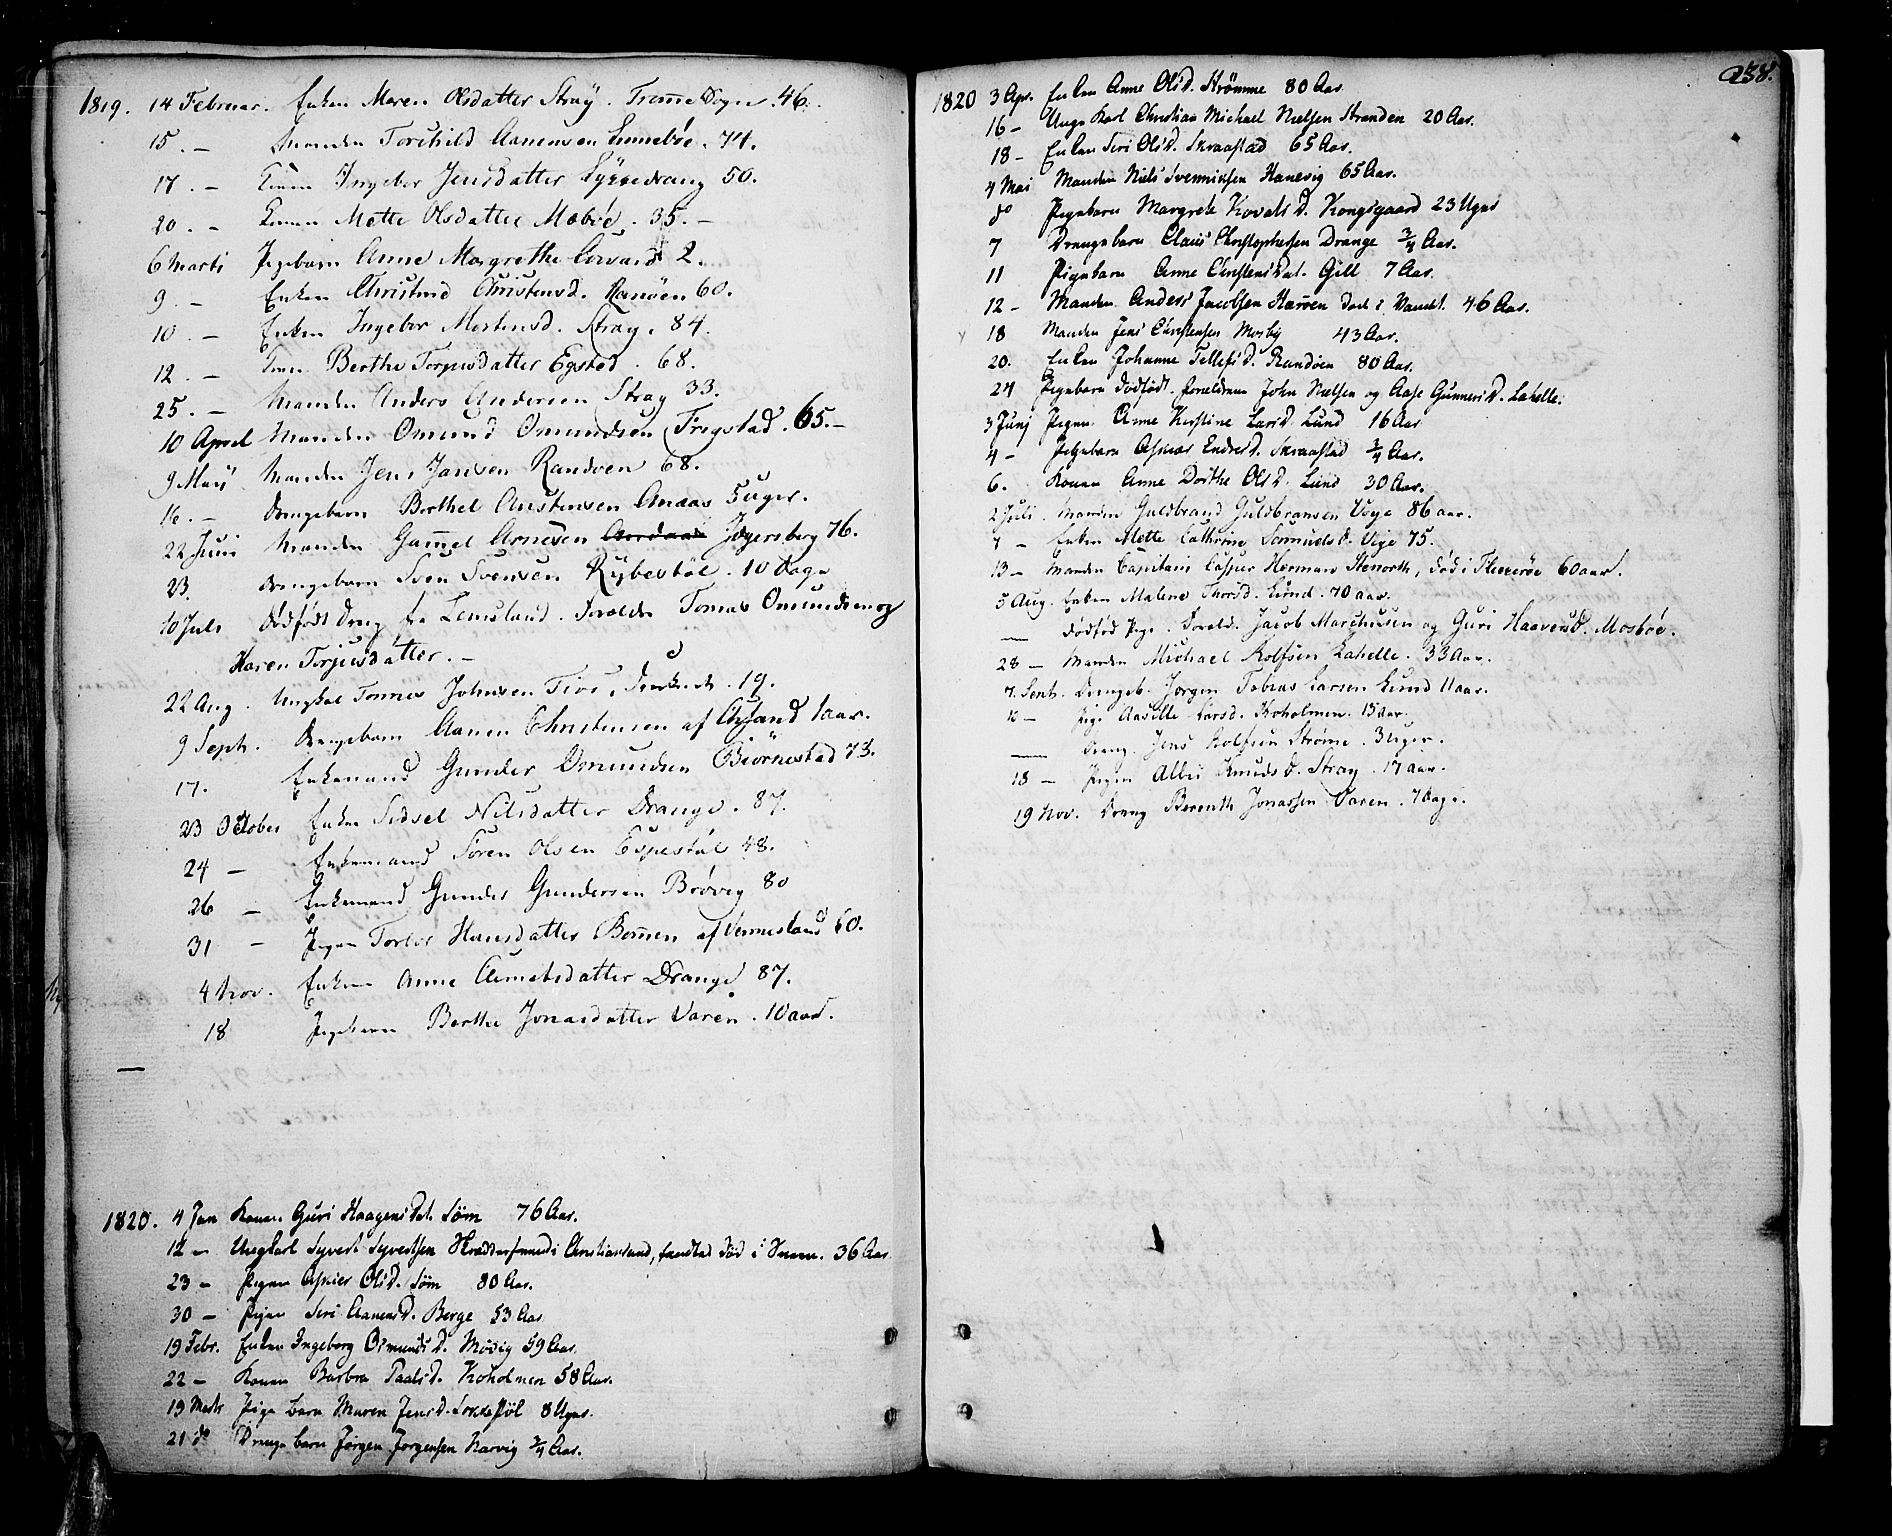 1819. 14 Februar. Enken Maren Olsdatter Stray. Tromøe Sogn. 46.
15. – Manden Torchild Aanensen Ennebøe. 74.
17. – Konen Ingebor Jensdatter 50.
20. – Konen Mette Olsdatter Mæbøe. 35. –
6 Marti Pigebarn Anne Margrethe 2.
9. – Enken Christine Christensd. Ranöen 60.
10 – Enken Ingebor Mortensd. Stray. 84.
12. – Konen Berthe Torjusdatter Egstød. 68.
25. – Manden Anders Andersen Stray 33.
10 April Manden Omund Omundsen Frigstad. 65. –
9 Maji Manden Jens Jansen Randöen 68.
16. – Drengebarn Berthel Austensen Aaaas 5 uger.
22 Juni Manden Gamel Arnesen Jegersberg 76.
23. Drengebarn Sven Svensen Rybestöl. 10 Dage
10 Juli Dødfødt Dreng fra Lemsland. Forældre Tomas Omundsen og
Karen Torjusdatter. –
22 Aug. Ungkal Tønnes Johnsen Tios, 19.
9 Septr. Drengebarn Aanen Christensen af Øysand 1 aar.
17. Enkemand Gunder Omundsen Biörnestad 73.
23 October Enken Sidsel Nilsdatter Drange. 87.
24 – Enkemand Sören Olsen Espestöl 48.
26 – Enkemand Gunder Gundersen Brövig 80
31 – Pigen Torbor Hansdatter Bomen af Vennesland 60.
4 Nov. Enken Anne Clemetsdatter Drange 87.
18 Pigebarn Berthe Jonasdatter Varen. 10 aar.
1820. 4 Jan Konen Guri Haagensdat. Søm 76 Aar.
12 – Ungkarl Syvert Syvertsen Skræddersvend i Christiansand, fundtes død i Sneen. 36 Aar
23 – Pigen Asnier Olsd. Søm 80 Aar.
30 – Pigen Siri Aanensd. Berge 53 Aar
19 Febr. Enken Ingeborg Osmundsd. Mövig 59 Aar.
22 – Konen Barbra Paalsd. Koholmen 58 Aar.
19 Marts Pige barn Maren Jensd. 8 Uger.
21 do Drenge barn Jørgen Jørgensen Narvig 3/4 Aar.
238.
1820 3 Apr. Enken Anne Olsd. Strömme 80 Aar
16 – Unge Karl Christian Michael Nielsen Stranden 20 Aar.
18 – Enken Siri Olsd. Skraastad 65 Aar.
4 Mai Manden Niels Svenningsen Hanevig 65 Aar.
do Pigebarn Margrete Kovalsd. Kongsgaard 23 Uger
7 Drengebarn Claus Christophersen Drange 3/4 Aar.
11 Pigebarn Anne Christensdat. Gill 7 Aar.
12 – Manden Anders Jacobsen død i Vandet. 46 Aar.
18 Manden Jens Christensen Mosby 43 Aar.
20. Enken Johanne Tellefsd. Randöen 80 Aar.
24 Pigebarn dødfødt. Foreldrene John Nielsen og Aase Gunnersd. Lahelle.
3 Junj Pigen Anne Kirstine Larsd. Lund 16 Aar
4 – Pigebarn Asnas Endresd. Skraastad 3/4 Aar.
6. Konen Anne Dorthe Olsd. Lund 30 Aar.
2 Juli. Manden Guldbrand Guldbransen Vige 86 aar.
7 – Enken Mette Cathrine Samuelsd. Vige 75.
13 – Manden Capitain Casper Herman Stenorth, død i Flekerøe 60 aar.
5 Aug. Enken Malene Thorsd. Lund. 70 aar.
— Dødfød Pige. Foreld. Jacob Marchusen og Guri Haavorsd. Mosbøe.
28 – Manden Michael Rolfsen Lahelle. 33 Aar.
7. Sept. Drengeb. Jørgen Tobias Larsen Lund 11 aar.
10 – Pige Aasille Larsd. Koholmen. 15 aar.
— Dreng. Jens Rolfsen Strøme. 3 Uger.
18 – Pigen Albei Knudsd. Stray. 17 aar.
19 Nov. Dreng Berenth Jonassen Varen. 7 Dage.